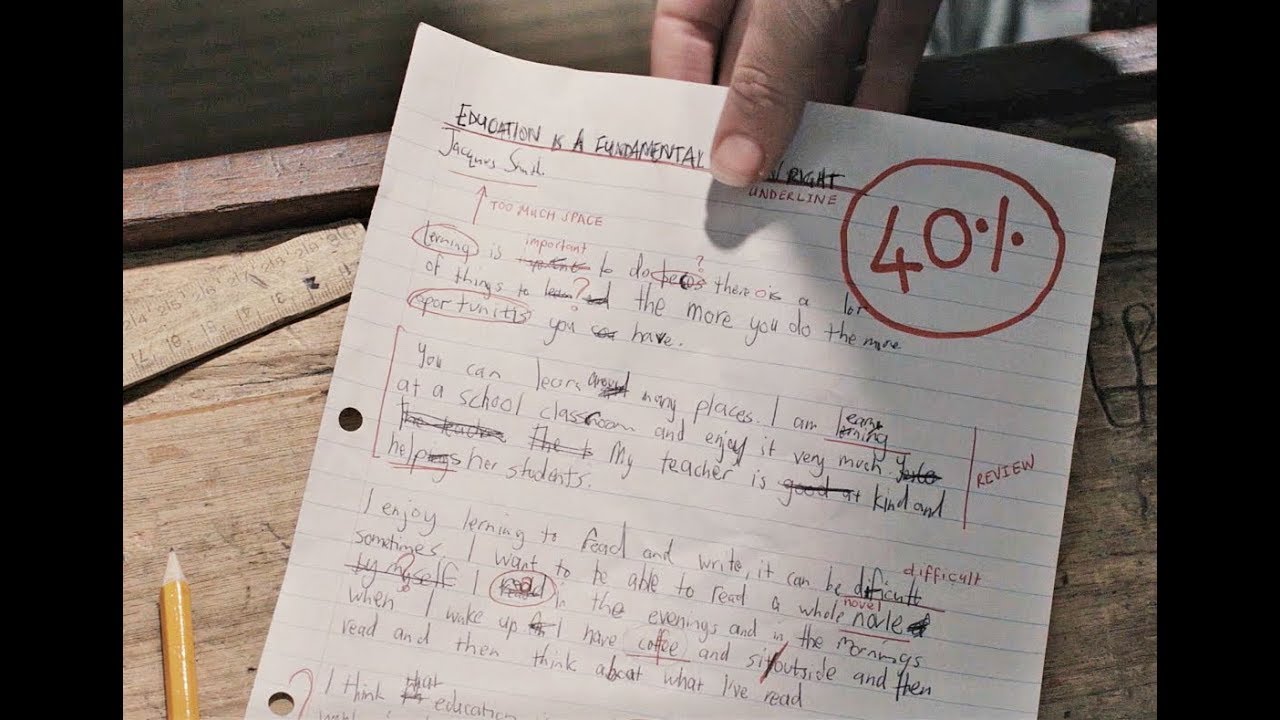 EDUCATION IS A FUNDAMENTAL RIGHT
Jacques Smith.
UNDERLINE
40%
TOO MUCH SPACE
important
lerning is to do there is a lot
of things to the more you do the more
oportunitis you have.
You can learn around many places. I am lerning
learn
at a school classroom and enjoy it very much
My teacher is kind and
helpings her students.
REVIEW
I enjoy lerning to read and write, it can be dificult
difficult
sometimes. I want to be able to read a whole novle
novel
by myself I read in the evenings and in the mornings
when I wake up I have coffee and sit outside and then
read and then think about what I've read
I think that education is